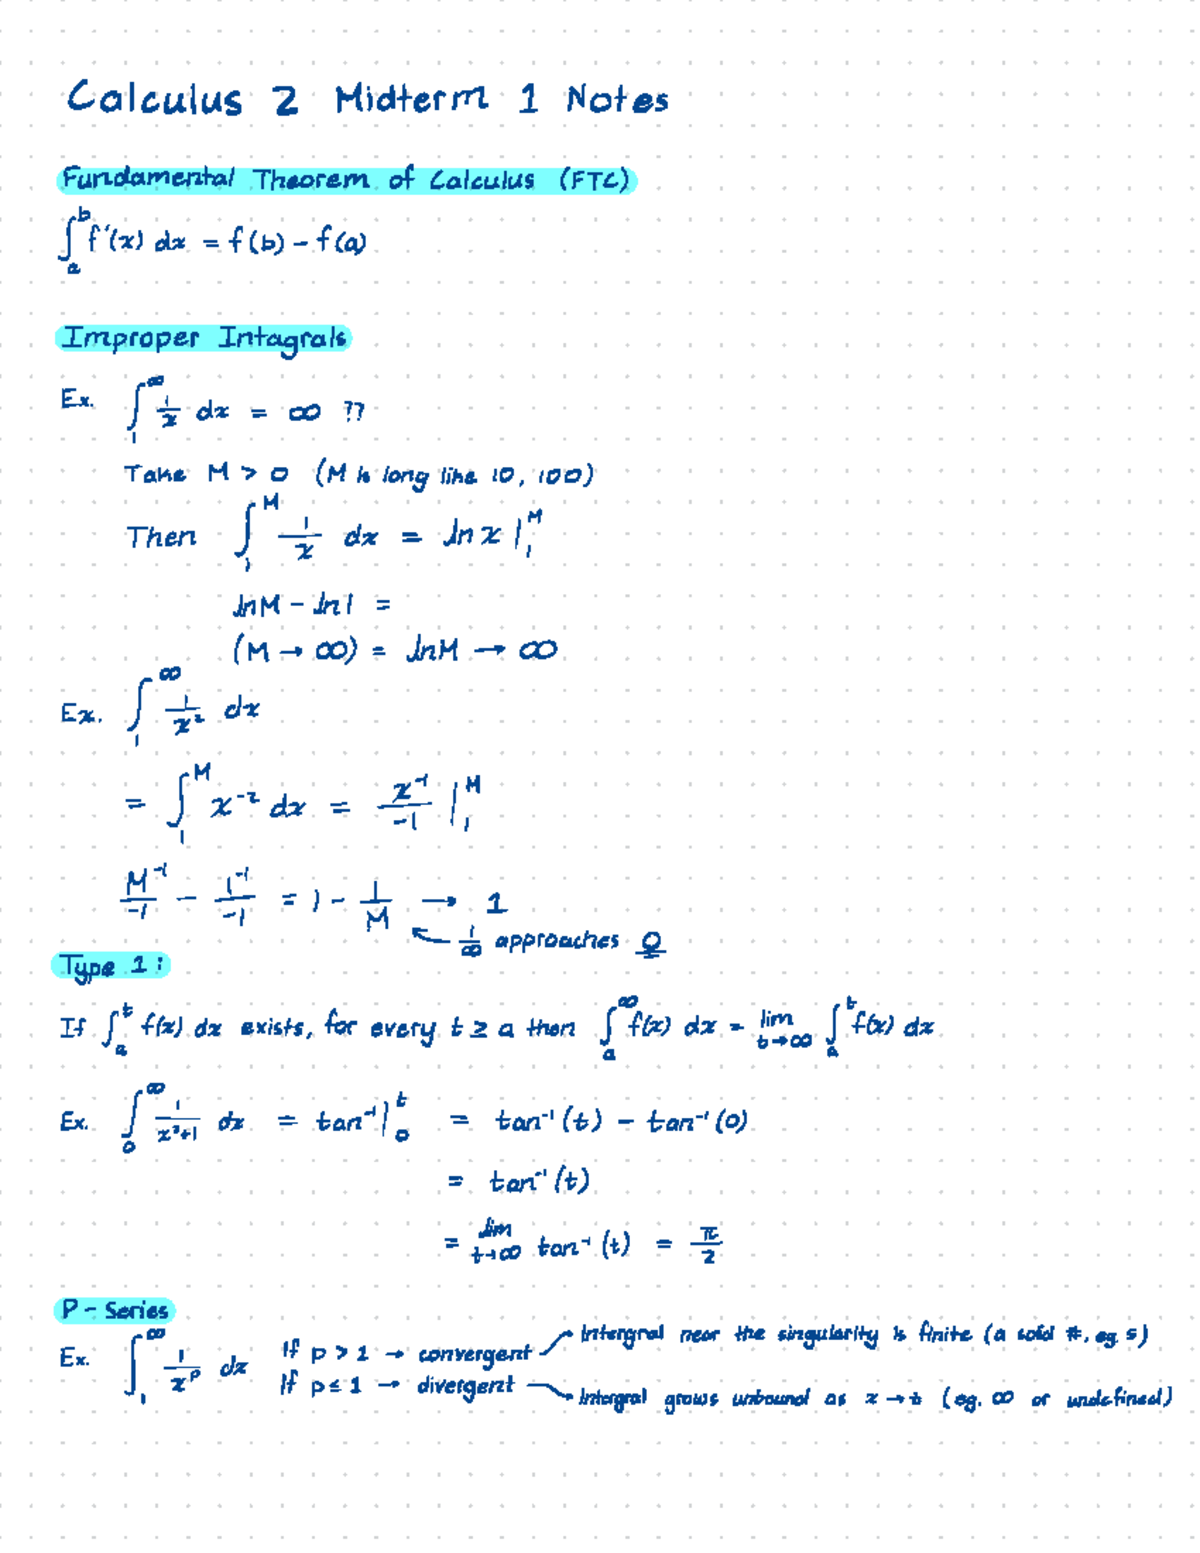 Calculus 2 Midterm 1 Notes
Fundamental Theorem of Calculus (FTC)
∫_a^b f'(x) dx = f(b) - f(a)
Improper Intagrals
Ex. ∫_1^∞ 1/x dx = ∞ ??
Take M > 0 (M is long like 10, 100)
Then ∫_1^M 1/x dx = ln x |_1^M
lnM - ln1 =
(M → ∞) = lnM → ∞
Ex. ∫_1^∞ 1/x² dx
= ∫_1^M x⁻² dx = x⁻¹/-1 |_1^M
M⁻¹/-1 - 1⁻¹/-1 = 1 - 1/M → 1
1/∞ approaches 0
Type 1:
If ∫_a^t f(x) dx exists, for every t ≥ a then ∫_a^∞ f(x) dx = lim_{t→∞} ∫_a^t f(x) dx
Ex. ∫_0^∞ 1/(x²+1) dx = tan⁻¹ |_0^t = tan⁻¹(t) - tan⁻¹(0)
= tan⁻¹(t)
= lim_{t→∞} tan⁻¹(t) = π/2
P - Series
Ex. ∫_1^∞ 1/x^p dx If p > 1 → convergent → Intergral near the singularity is finite (a solid #, eg. 5)
If p ≤ 1 → divergent → Intergral grows unbound as x → t (eg. ∞ or undefined)